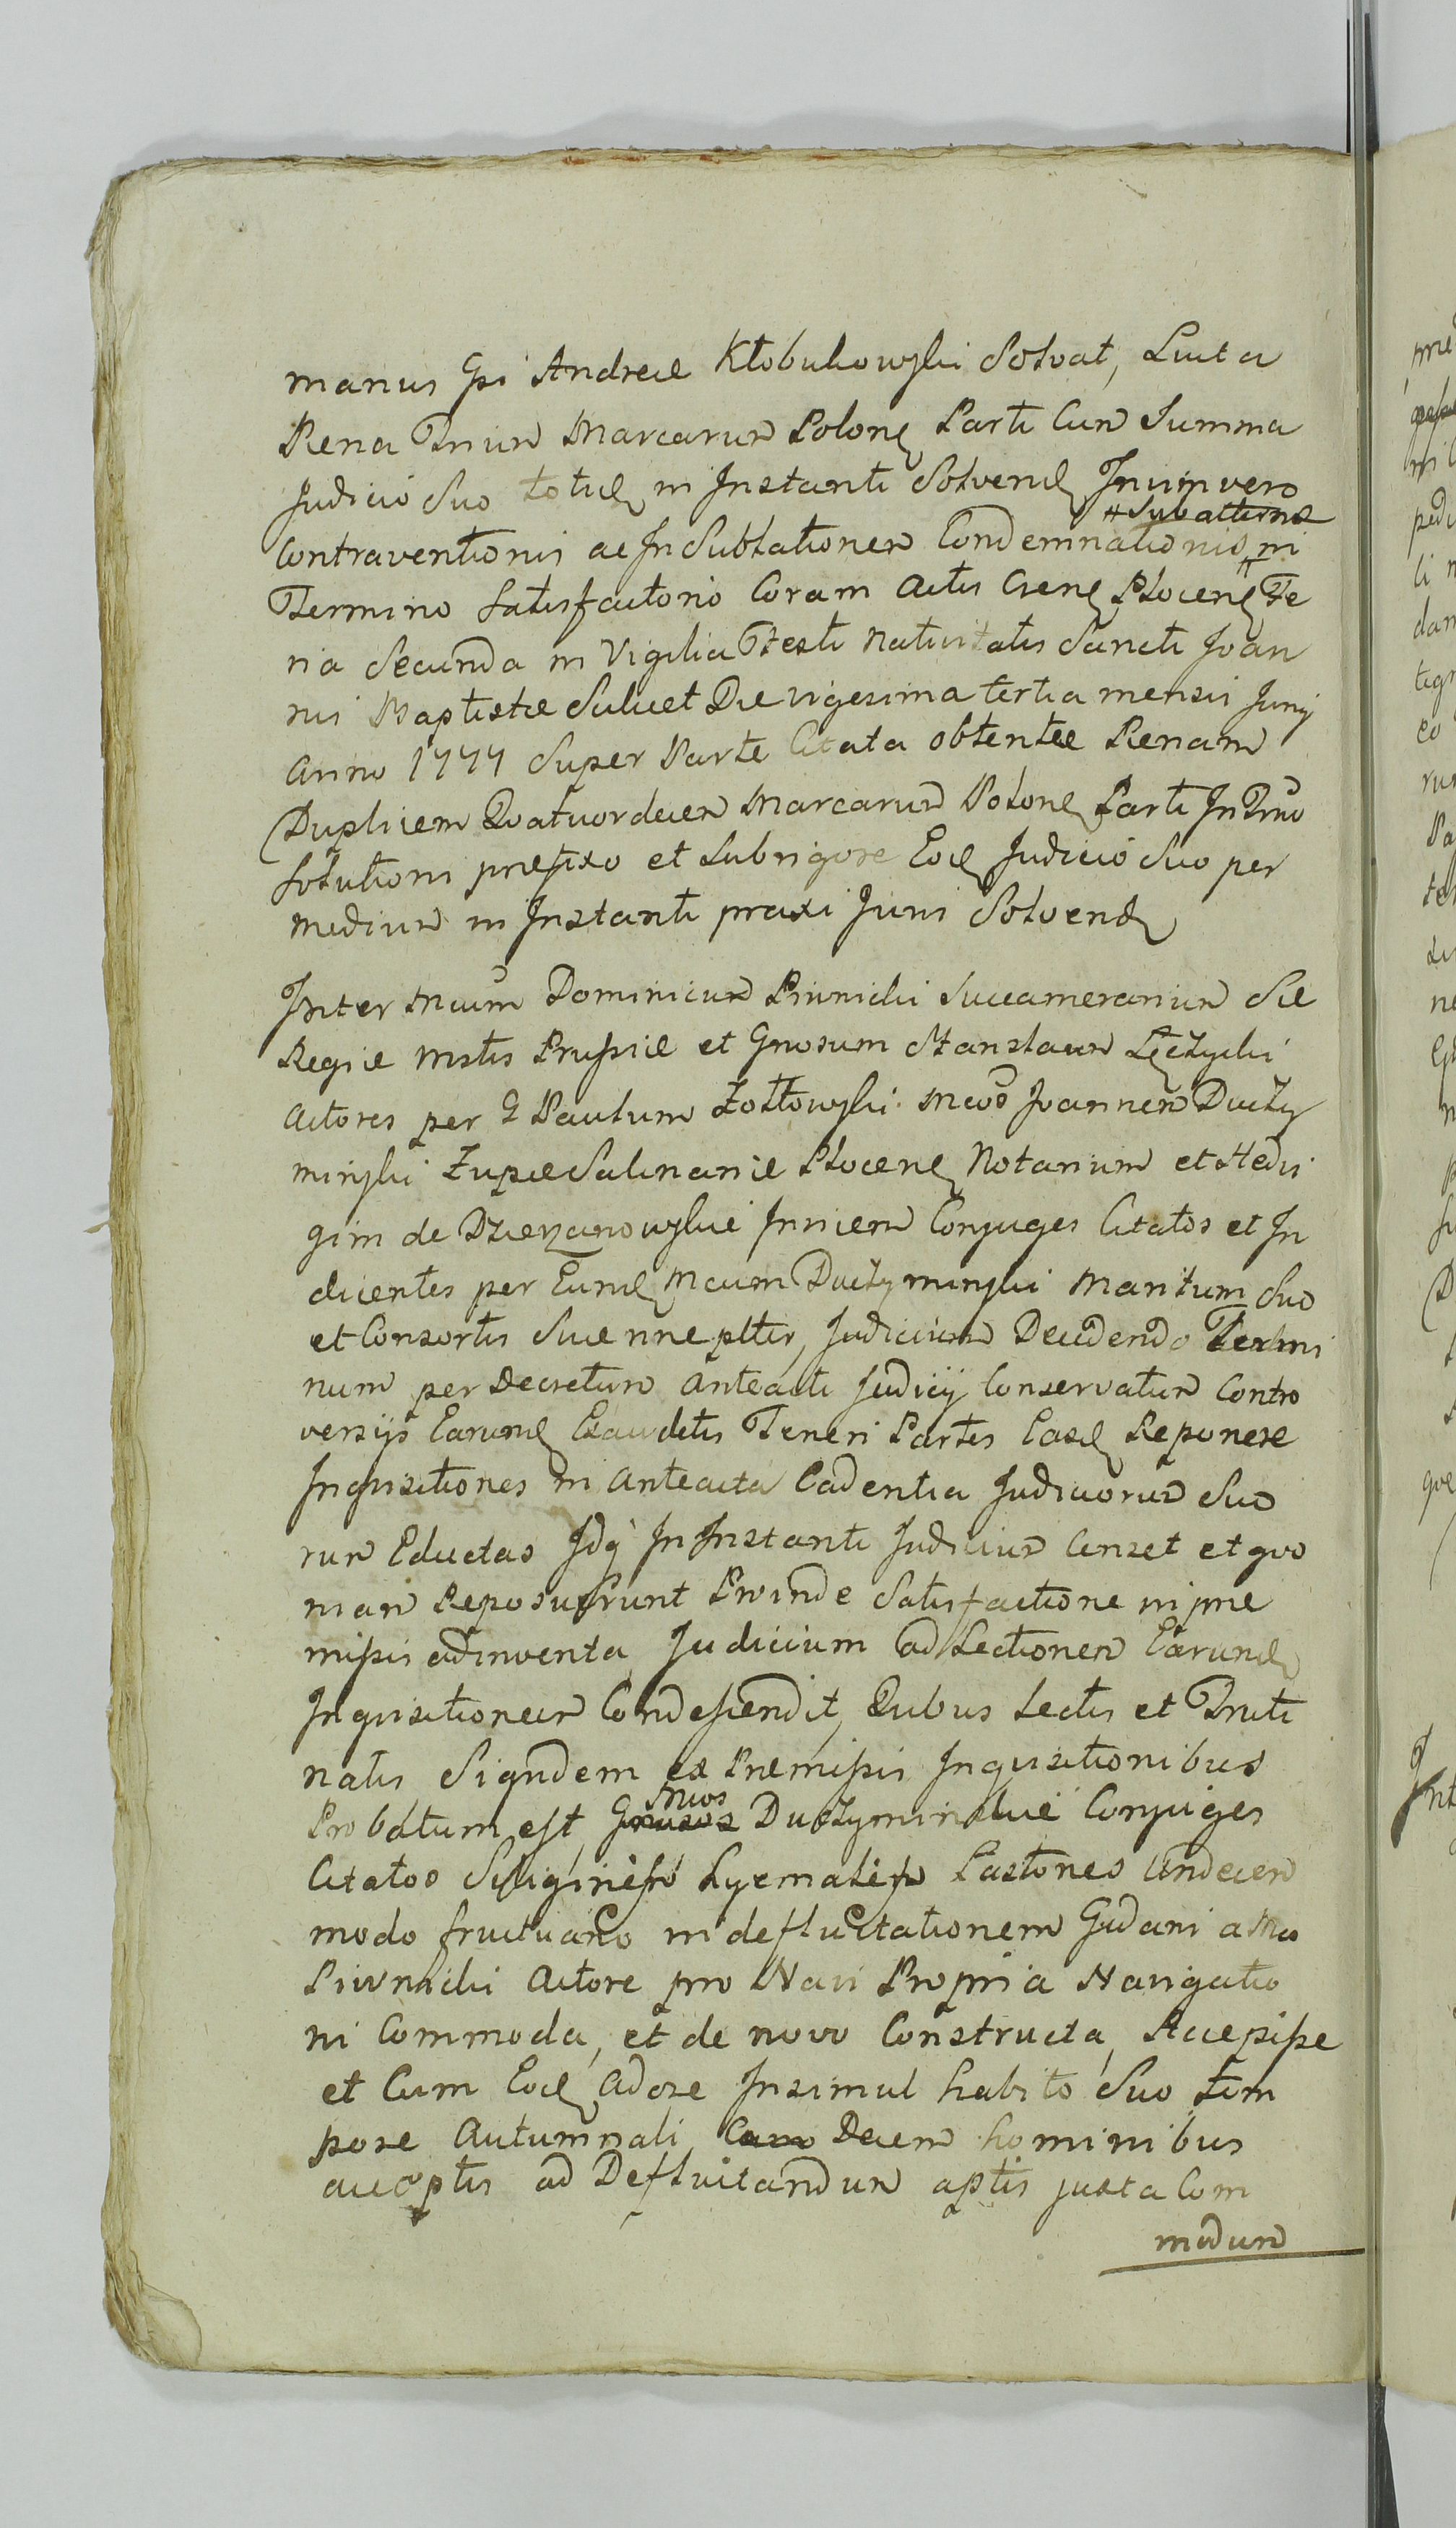 manus Gsi Andreæ Kłobukowski Solvat, Luita
Pena Trium Marcarum Polonę Parti Cum Summa
Judicio Suo totidę in Instanti Solvendę In vim vero
Contraventionis ac In Sublationem Condemnationis # in
# Subalterna
Termino Satisfactorio Coram Actis Crenę Plocenę Fe
ria Secunda in Vigilia Festi Nativitatis Sancti Joan
nis Baptistæ Scilicet Die vigesima tertia mensis Junij
Anno 1777 Super Parte Citata obtentæ Penam
Duplicem Qvatuordecem Marcarum Polonę Parti In Trno
Solutioni præfixo et Sub rigore Eodę Judicio Suo per
medium in Instanti praxi Juris Solvendę
Inter Mcum Dominicum Piwnicki Succamerarium Sæ
Regiæ Mstis Prussiæ et Gnosum Stanslaum Łęczycki
Actores per G Paulum Zołtowski Mcos Joannem Duczy
minski Zupæ Salinariæ Plocenę Notarium et Hedvi
gim de Dzierzanowskie Invicem Conjuges Citatos et In
dicentes per Eundę Mcum Duczyminski Maritum Suo
et Consortis Suæ nne pltter, Judicium Decidendo Termi
num per Decretum Anteacti Judicij Conservatum Contro
versijs Earundę Exauditis Teneri Partes Easdę Reponere
Inqvisitiones in Anteacta Cadentia Judiciorum Suo
rum Eductas Idq̀ In Instanti Judicium Censet et qvo
niam Reposuerunt Proinde Satisfactione in præ
missis adinventa, Judicium ad Lectionem Earundę
Inqvisitionum Condescendit, Qvibus Lectis et Truti
natis Siqvidem ex Præmissis Inqvisitionibus
Mcos
Probatum est, Gnosos Duczyminskie Conjuges
Citatos Lastones Undecem
modo fructuario in defluctationem Gedani a Mco
Piwnicki Actore pro Navi Propria Navigatio
ni Commoda, et de novo Constructa, Accepisse
et Cum Eodę Actore Insimul habito Suo tem
pore Autumnali Cum Decem hominibus
acceptis ad Defluitandum aptis juxta Com
modum